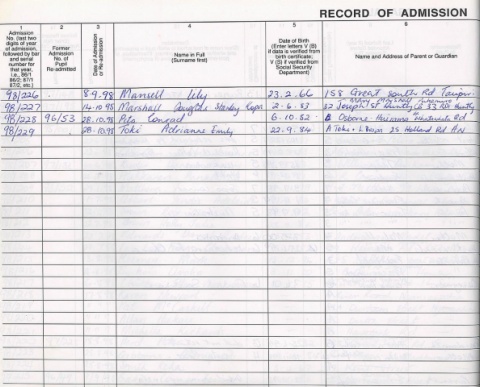 RECORD OF ADMISSION
1
Admission No. (last two digits of year of admission, followed by bar and serial number for that year, i.e., 86/1 86/2; 87/1 87/2, etc.)
2
Former Admission No. of Pupil Re-admitted
3
Date of Admission or Re-admission
4
Name in Full (Surname first)
5
Date of Birth (Enter letters V (B) if data is verified from birth certificate; V (S) if verified from Social Security Department)
6
Name and Address of Parent or Guardian
98/226 8-9-98 Mansell Lily 23.2.66 158 Great South Rd
98/227 14-10-98 Marshall Stanley 2-6-83 32 Joseph St Huntly
98/228 96/53 28.10.98 Conrad 6.10.82 Osborne Rd
98/229 28.10.98 Toki Adrianne Emily 22.9.84 A Toki + L 25 Holland Rd